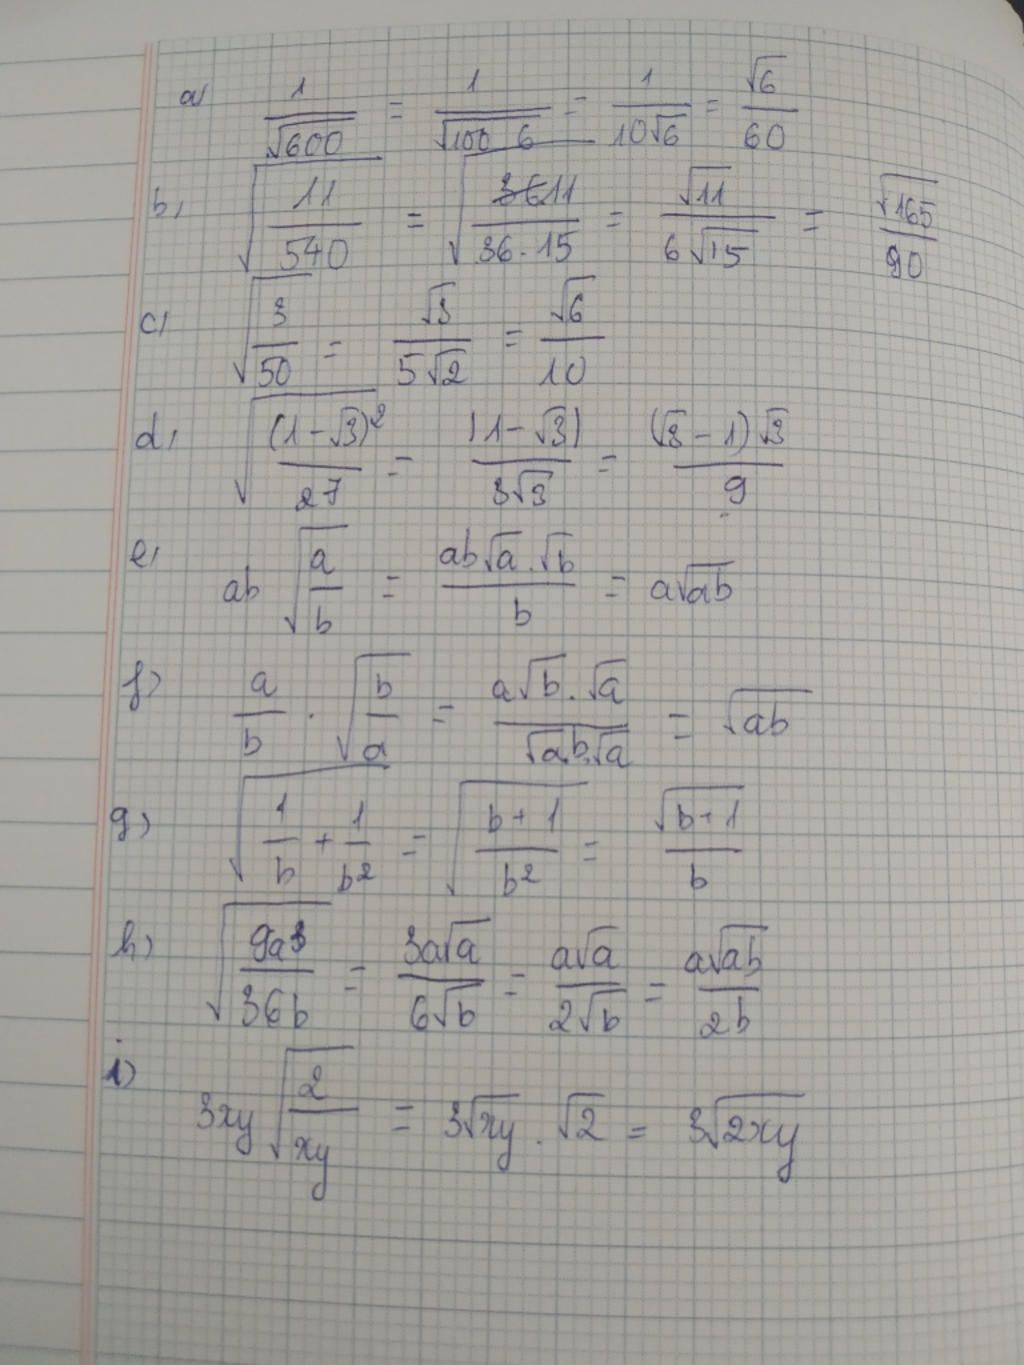 a) 1/√600 = 1/√(100 6) = 1/(10√6) = √6/60
b, √(11/540) = √(11/(36.15)) = √11/(6√15) = √165/90
c, √(3/50) = √3/(5√2) = √6/10
d, √((1-√3)²/27) = |1-√3|/(3√3) = (√3-1)√3/9
e, ab √(a/b) = ab√a.√b/b = a√ab
f) a/b . √(b/a) = a√b.√a/(√a.b.√a) = √ab
g) √(1/b + 1/b²) = √((b+1)/b²) = √(b+1)/b
h) √(9a³/36b) = 3a√a/(6√b) = a√a/(2√b) = a√ab/2b
i) 3xy √(2/xy) = 3√xy . √2 = 3√2xy